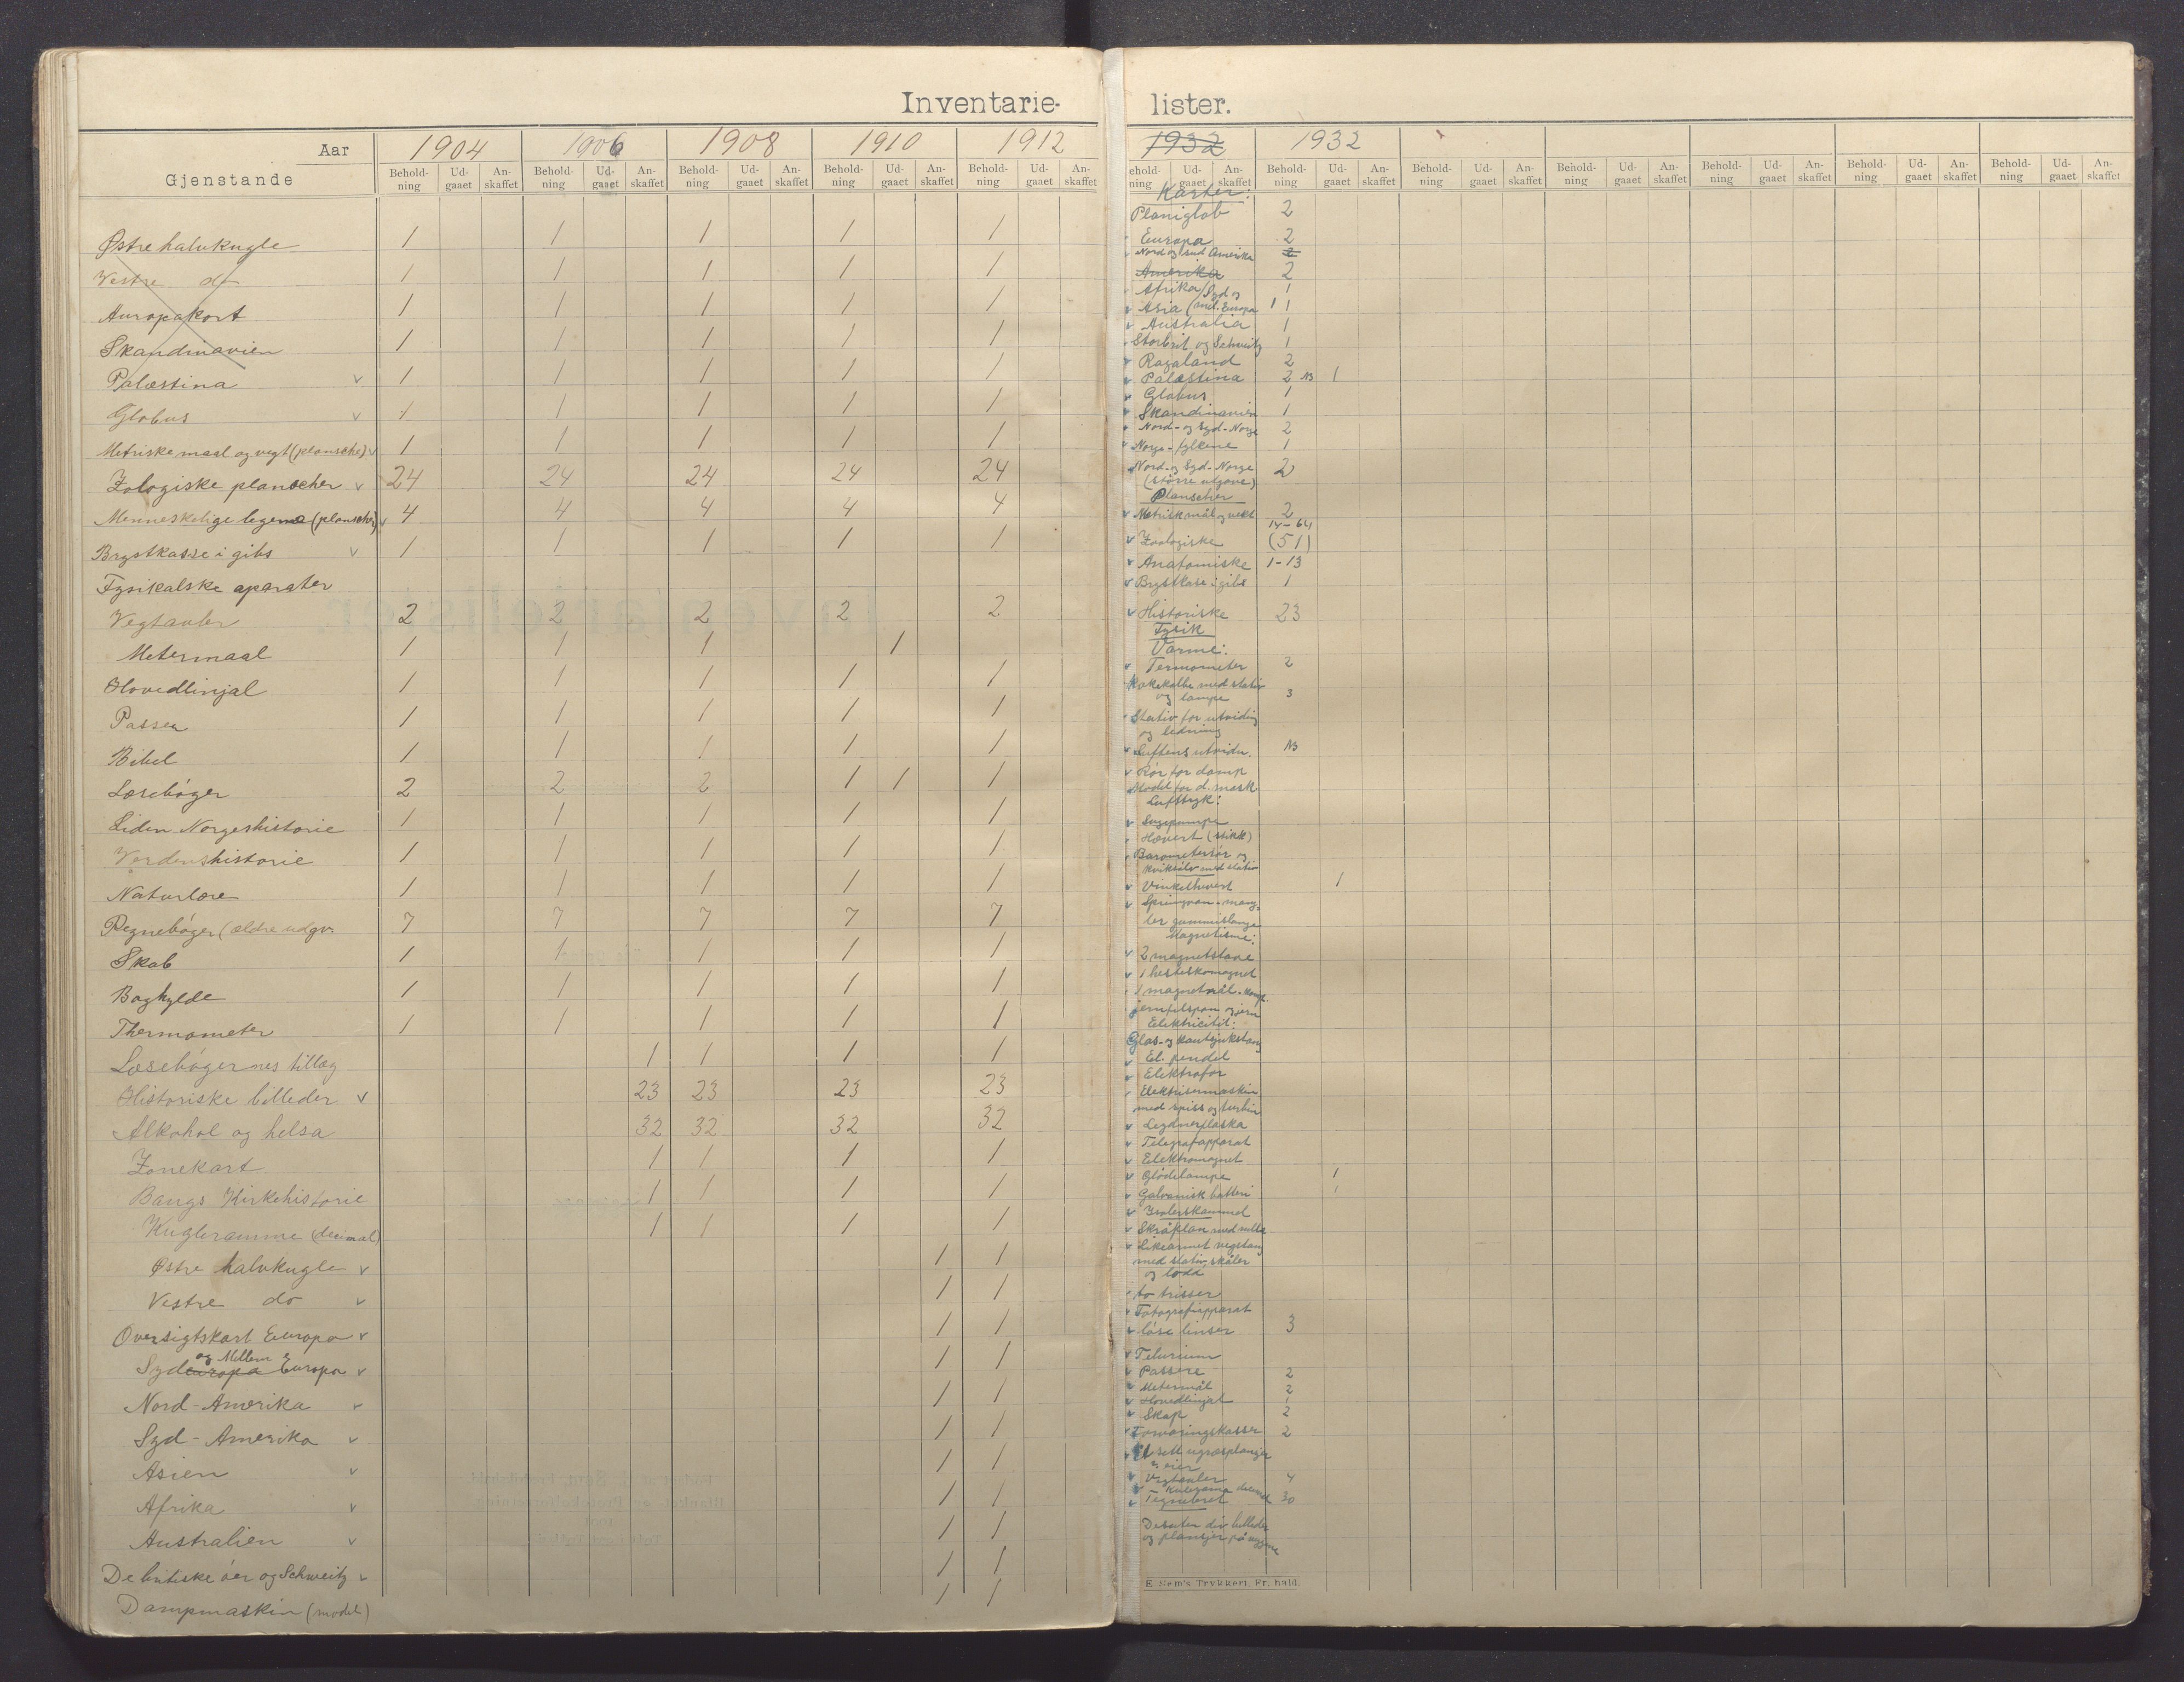 Inventarie-
Aar 1904 1906 1908 1910 1912
Gjenstande Behold-ning Ud-gaaet An-skaffet Behold-ning Ud-gaaet An-skaffet Behold-ning Ud-gaaet An-skaffet Behold-ning Ud-gaaet An-skaffet Behold-ning Ud-gaaet An-skaffet
Østre halvkugle 1 1 1 1 1
Vestre do 1 1 1 1 1
Auropakort 1 1 1 1 1
Skandinavien 1 1 1 1 1
Palæstina v 1 1 1 1 1
Globus v 1 1 1 1 1
Metriske maal og vegt (plansche) v 1 1 1 1 1
Zologiske planscher v 24 24 24 24 24
Menneskelige legeme (planscher) v 4 4 4 4 4
Brystkasse i gibs v 1 1 1 1 1
Fysikalske aparater
Vegtavler 2 2 2 2 2
Metermaal 1 1 1 1
Hovedlinjal 1 1 1 1 1
Passer 1 1 1 1 1
Bibel 1 1 1 1 1
Læsebøger 2 2 2 1 1 1
Liden Norgeshistorie 1 1 1 1 1
Verdenshistorie 1 1 1 1 1
Naturlære 1 1 1 1 1
Regnebøger (ældre udgv. 7 7 7 7 7
Skab 1 1 1 1 1
Boghylde 1 1 1 1 1
Thermometer 1 1 1 1 1
Læsebøgernes tillæg 1 1 1 1
Historiske billeder v 23 23 23 23
Alkohol og helsa 32 32 32 32
Zonekart 1 1 1 1
Bangs Kirkehistorie 1 1 1 1
Kugleramme (decimal) 1 1 1 1
Østre halvkugle v 1 1
Vestre do v 1 1
Oversigtskart Europa v 1 1
og Mellem
Sydeuropa Europa v 1 1
Nord-Amerika v 1 1
Syd-Amerika v 1 1
Asien v 1 1
Afrika v 1 1
Australien v 1 1
De britiske øer og Schweitz v 1 1
Dampmaskin (model) 1 1
lister.
1932 1932
ehold-ning Ud-gaaet An-skaffet Behold-ning Ud-gaaet An-skaffet Behold-ning Ud-gaaet An-skaffet Behold-ning Ud-gaaet An-skaffet Behold-ning Ud-gaaet An-skaffet Behold-ning Ud-gaaet An-skaffet Behold-ning Ud-gaaet An-skaffet
Karter:
Planiglob 2
Europa 2
Nord og Sud Amerika 2
Amerika 2
Afrika 1
Syd og
Asia (mel. Europa 1 1
v Australia 1
Storbrit og Schweitz 1
v Rogaland 2
v Palæstina 2 1
v Globus 1
v Skandinavien 1
v Nord- og Syd-Norge 2
v Norge-fylkene 1
Nord- og Syd-Norge 2
(større utgave)
Planscher
v Metrisk mål og vekt 2
14-64
v Zoologiske (51)
v Anatomiske 1-13
v Brystkase i gibs 1
v Historiske 23
Fysik
Varme:
v Termometer 2
Kokekolbe med stativ
og lampe 3
Stativ for utviding
og ledning
v Luftens utvidn.
v Rør for damp
Model for d. mask
Lufttryk:
v Sugepumpe
Hævert (stikk)
Barometerrør og
kviksølv med stativ
v Vinkelhevert 1
v Springvan - mang-
ler gummislange
Magnetisme:
v 2 magnetstave
v 1 hesteskomagnet
1 magnetnål
jernfilspon og jern
Elektricitit:
Glas- og kautsjukstang
v El. pendel
v Elektrofor
Elektrisermaskin
med spiss og turbin
v Leydnerflaska
v Telegrafapparat
v Elektromagnet
v Glødelampe 1
v Galvanisk batteri 1
v Isolerskammel
v Skråplan med rulle
v Likearmet vegstang
med stativ skåler
og lodd
to trisser
v Fotografiapparat
v løse linser 3
v Telurium
v Passere 2
v Metermål 2
v Hovedlinjal 1
v Skap 2
v Forvaringskasser 2
Et sett ugrasplansjer
v Vegtavler 4
Kuleramme
v Tegnebret 30
Desuten div billeder
og plansjer på veggene
E. Sem's Trykkeri, Fr. hald.